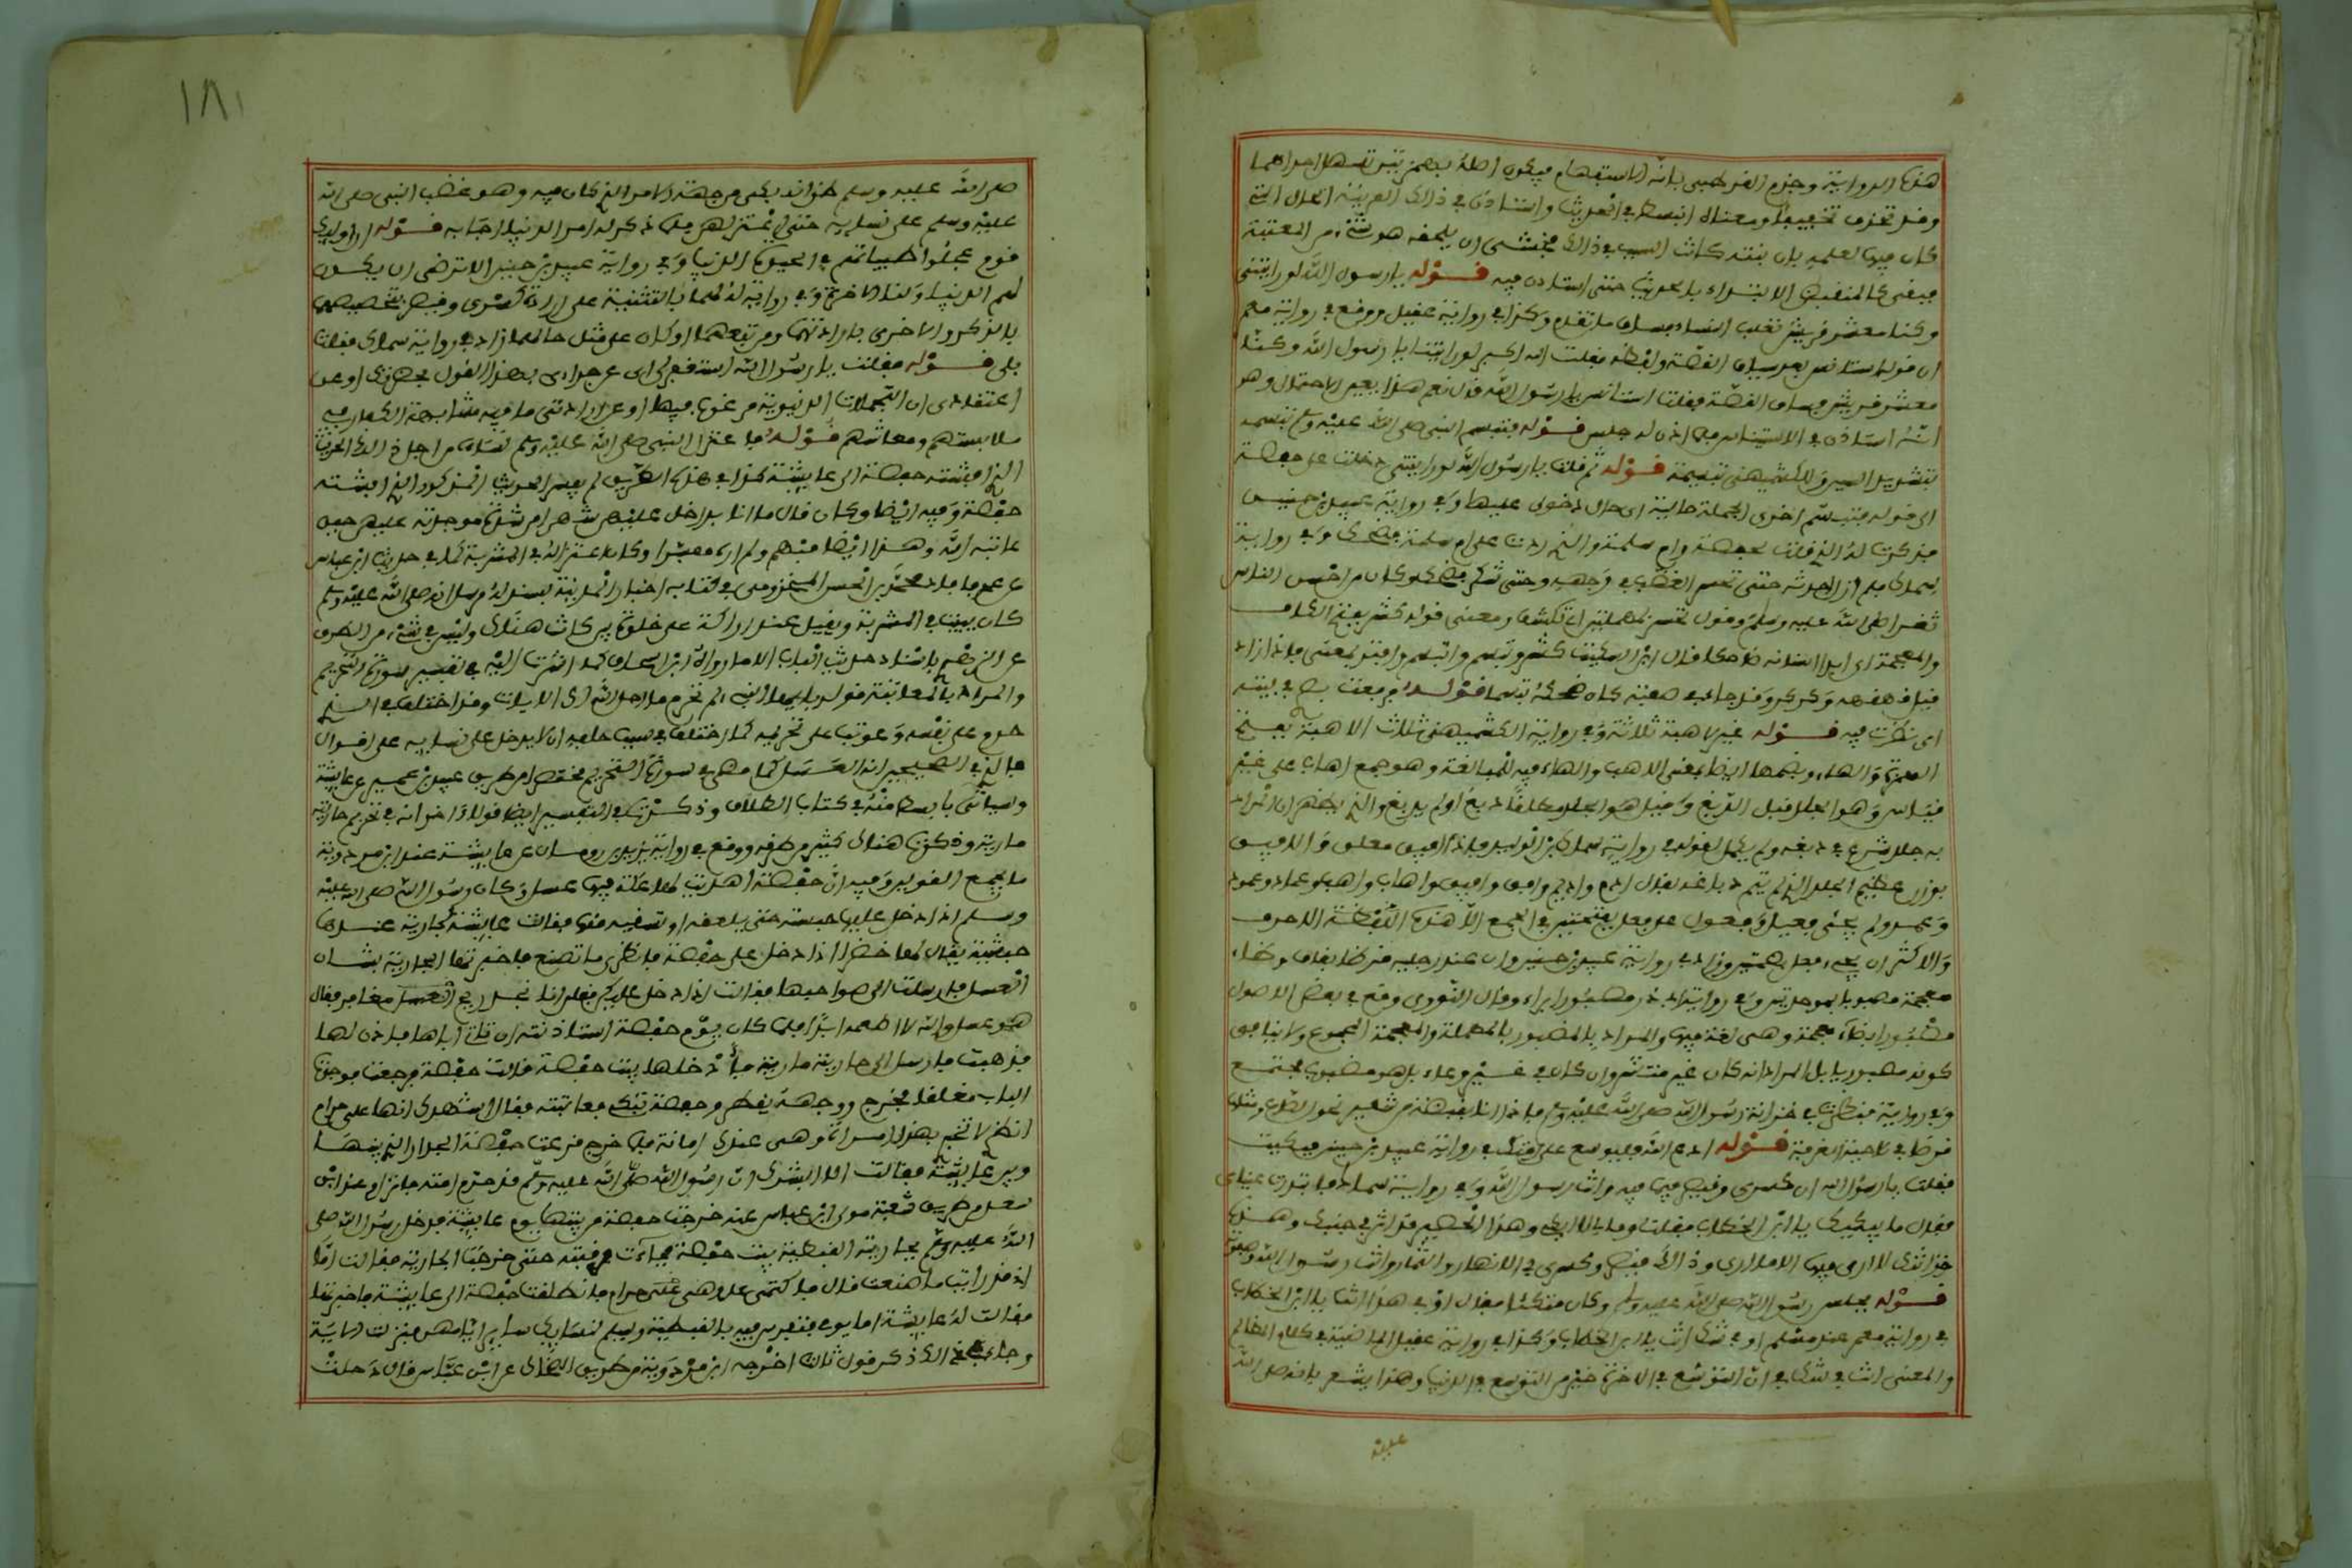 هذه الرواية وجزم القرطبي بانه للاستفهام فيكون اصله بهمزتين تسهل احداهما
وقد تحذف تخفيفا ومعناه انبسط في الحديث واستاذن في ذلك لقرينة الحال التي
كان فيها لعلمه بان بنته كانت السبب في ذلك فخشى ان يلحقه هو شيء من المعتبة
فبقي كالمنقبض عن الابتداء بالحديث حتى استاذن فيه قوله يا رسول الله لو رايتني
وكنا معشر قريش نغلب النساء فساق ما تقدم وكذا في رواية عقيل ووقع في رواية معمر
ان قوله استانس بعد سياق القصة ولفظه فقلت الله اكبر لو رايتنا يا رسول الله وكنا
معشر قريش فساق القصة فقلت استانس يا رسول الله قال نعم هذا يعين الاحتمال وهو
انه استاذن في الاستيناس فلما اذن له جلس قوله فتبسم النبي صلى الله عليه وسلم تبسمة
بتشديد السين وللكشميهني تبسيمة قوله ثم قلت يا رسول الله لو رايتني دخلت على حفصة
الى قوله فتبسم اخرى الجملة حالية اي حال دخولي عليها وفي رواية عبيد بن حنين
فذكرت له الذي قلت لحفصة وام سلمة والذي ردت علي ام سلمة فضحك وفي رواية
سماك فلم ازل احدثه حتى تحسر الغضب في وجهه وحتى كشر فضحك وكان من احسن الناس
ثغرا صلى الله عليه وسلم وقوله تحسر بمهملتين اي تكشف ومعنى قوله كشر بفتح الكاف
والمعجمة اي ابدا اسنانه ضاحكا قال ابن السكيت كشر وتبسم وابتسم وافتر بمعنى فاذا زاد
قيل قهقه وكركر وقد جاء في صفته كان ضحكه تبسما قوله فرفعت بصري في بيته
اي نظرت فيه قوله غير اهبة ثلاثة وفي رواية الكشميهني ثلاث الاهبة بفتح
الهمزة والهاء وبضمها ايضا بمعنى الاهب والهاء فيه للمبالغة وهو جمع اهاب على غير
قياس وهو الجلد قبل الدبغ وقيل هو الجلد مطلقا دبغ او لم يدبغ والذي يظهر ان المراد
به جلد شرع في دبغه ولم يكمل لقوله في رواية سماك بن الوليد فاذا افيق معلق والافيق
بوزن عظيم الجلد الذي لم يتم دباغه يقال ادم واديم وافق وافيق واهاب واهب وعماد وعمود
وعمد ولم يجئ فعيل وفعول على فعل بفتحتين في الجمع الا هذه اللفظة الاحرف
والاكثر ان يجيء فعل بضمتين وزاد في رواية عبيد بن حنين وان عند رجليه قرظا بقاف وظاء
معجمة مصبوبا بموحدتين وفي رواية ابي ذر مصبورا براء وقال النووي وقع في بعض الاصول
مضبورا بضاد معجمة وهي لغة فيها والمراد بالمصبور بالمهملة والمعجمة المجموع ولا ينافي
كونه مصبوبا بل المراد انه كان غير منتثر وان كان في غير وعاء بل هو مصبوب مجتمع
وفي رواية فنظرت في خزانة رسول الله صلى الله عليه وسلم فاذا انا بقبضة من شعير نحو الصاع ومثلها
قرظا في ناحية الغرفة قوله ادع الله فليوسع على امتك في رواية عبيد بن حنين فبكيت
فقلت يا رسول الله ان كسرى وقيصر فيما هما فيه وانت رسول الله وفي رواية سماك فابتدرت عيناي
فقال ما يبكيك يا ابن الخطاب فقلت وما لي لا ابكي وهذا الحصير قد اثر في جنبك وهذه
خزانتك لا ارى فيها الا ما ارى وذاك قيصر وكسرى في الانهار والثمار وانت رسول الله وصفوته
قوله فجلس رسول الله صلى الله عليه وسلم وكان متكئا فقال اوفي هذا انت يا ابن الخطاب
في رواية معمر عند مسلم اوفي شك انت يا ابن الخطاب وكذا في رواية عقيل الماضية في كتاب المظالم
والمعنى انت في شك في ان التوسع في الاخرة خير من التوسع في الدنيا وهذا يشعر بانه صلى الله
عليه
١٨١
صلى الله عليه وسلم ظن انه بكى من جهة الامر الذي كان فيه وهو غضب النبي صلى الله
عليه وسلم على نسائه حتى اعتزلهن فلما ذكر له امر الدنيا اجابه قوله ان اولئك
قوم عجلوا طيباتهم في الحياة الدنيا وفي رواية عبيد بن حنين الا ترضى ان يكون
لهم الدنيا ولنا الاخرة وفي رواية له لهما بالتثنية على ارادة كسرى وقيصر لتخصيصهما
بالذكر والاخرى بارادتهما ومن تبعهما او كان على مثل حالهما زاد في رواية سماك فقلت
بلى قوله فقلت يا رسول الله استغفر لي اي عن جراءتي بهذا القول بحضرتك او عن
اعتقادي ان التجملات الدنيوية مرغوب فيها او عن ارادتي ما فيه مشابهة الكفار في
ملابستهم ومعاشهم قوله فاعتزل النبي صلى الله عليه وسلم نساءه من اجل ذلك الحديث
الذي افشته حفصة الى عايشة كذا في هذه الطريق لم يفسر الحديث المذكور الذي افشته
حفصة وفيه ايضا وكان قال ما انا بداخل عليهن شهرا من شدة موجدته عليهن حين
عاتبه الله وهذا ايضا مبهم ولم اره مفسرا وكان اعتزاله في المشربة كما في حديث ابن عباس
عن عمر فافاد محمد بن الحسن المخزومي في كتابه اخبار المدينة بسند له مرسل انه صلى الله عليه وسلم
كان يبيت في المشربة ويقيل عند اراكة على خلوة بير كانت هناك وليس في شيء من الطرق
عن الزهري باسناد حديث الباب الا ما رواه ابن اسحاق كما اشرت اليه في تفسير سورة التحريم
والمراد بالمعاتبة قوله يا ايها النبي لم تحرم ما احل الله لك الايات وقد اختلف في الذي
حرم على نفسه وعوتب على تحريمه كما اختلف في سبب حلفه ان لا يدخل على نسايه على اقوال
فالذي في الصحيحين انه العسل كما مضى في سورة التحريم مختصرا من طريق عبيد بن عمير عن عايشة
وسياتي بابسط منه في كتاب الطلاق وذكرت في التفسير ايضا قولا اخر انه في تحريم جاريته
مارية وذكرت هناك كثيرا من طرقه ووقع في رواية يزيد بن رومان عن عايشة عند ابن مردويه
ما يجمع القولين وفيه ان حفصة اهديت لها عكة فيها عسل وكان رسول الله صلى الله عليه
وسلم اذا دخل عليها حبسته حتى تلعقه او تسقيه منها فقالت عايشة لجارية عندها
حبشية يقال لها خضرا اذا دخل على حفصة فانظري ما تصنع فاخبرتها الجارية بشان
العسل فارسلت الى صواحبها فقالت اذا دخل عليكن فقلن انا نجد ريح المغافير فقال
هو عسل والله لا اطعمه ابدا فلما كان يوم حفصة استاذنته ان تاتي اباها فاذن لها
فذهبت فارسل الى جاريته مارية فادخلها بيت حفصة قالت حفصة فرجعت فوجدت
الباب مغلقا فخرج ووجهه يقطر وحفصة تبكي فعاتبته فقال اشهدك انها علي حرام
انظري لا تخبري بهذا امراة وهي عندك امانة فلما خرج قرعت حفصة الجدار الذي بينها
وبين عايشة فقالت الا ابشرك ان رسول الله صلى الله عليه وسلم قد حرم امته فانزل الله وعند ابن
سعد من طريق شعبة مولى ابن عباس عنه خرجت حفصة من بيتها يوم عايشة فدخل رسول الله صلى
الله عليه وسلم بجاريته القبطية بيت حفصة فجاءت فرقبته حتى خرجت الجارية فقالت اما
اني قد رايت ما صنعت قال فاكتمي علي وهي علي حرام فانطلقت حفصة الى عايشة فاخبرتها
فقالت له عايشة اما يومي فتعرس فيه بالقبطية ويسلم لنسايك ساير ايامهن فنزلت الاية
وجاء في ذلك ذكر قول ثالث اخرجه ابن مردويه من طريق الضحاك عن ابن عباس قال دخلت